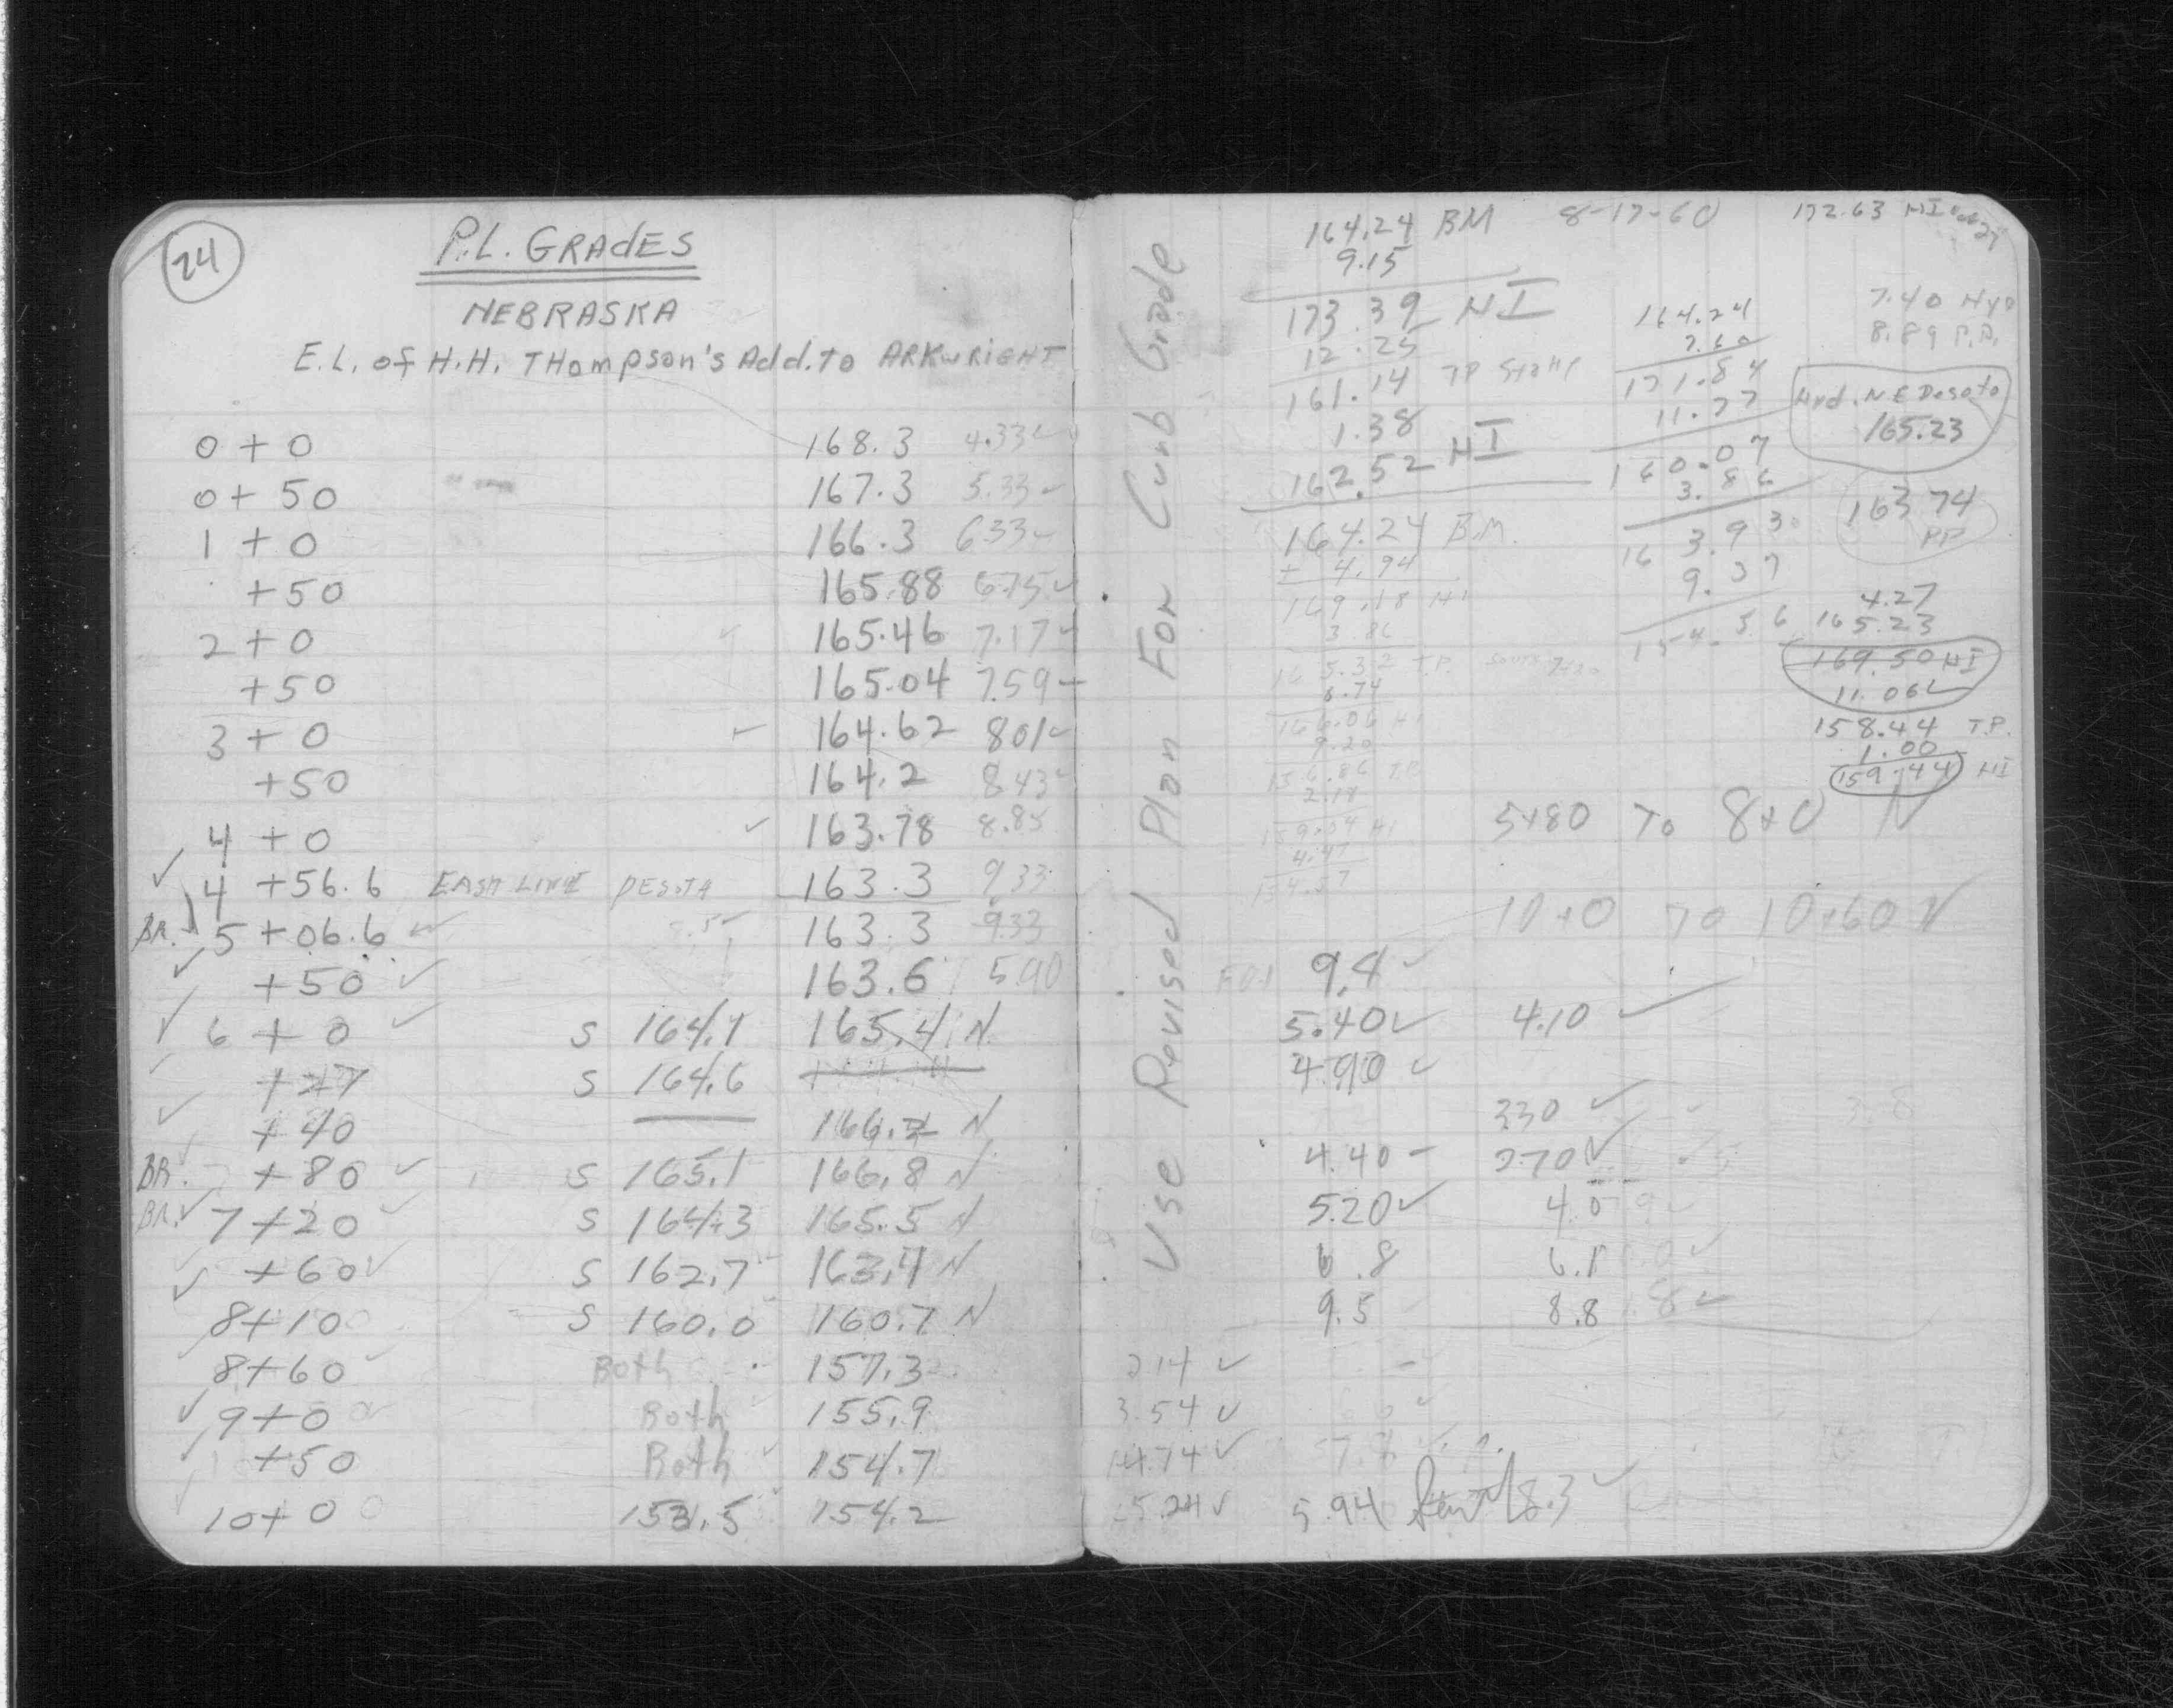 24
P.L. GRADES
NEBRASKA
E.L. of H.H. THompson's Add. To ARKWRIGHT
0 + 0 168.3 4.33
0 + 50 167.3 5.33
1 + 0 166.3 6.33
+50 165.88 6.75
2 + 0 165.46 7.17
+50 165.04 7.59
3 + 0 164.62 8.01
+50 164.2 8.43
4 + 0 163.78 8.85
4 +56.6 EAST LINE DESOTA 163.3 9.33
BR. 5 +06.6 163.3 9.33
+50 163.6 5.90
6 + 0 S 164.1 165.4 N
+27 S 164.6
+40 166.2 N
BR. +80 S 165.1 166.8 N
BR. 7+20 S 164.3 165.5 N
+60 S 162.7 163.4 N
8+10 S 160.0 160.7 N
8+60 Both 157.3
9+0 Both 155.9
+50 Both 154.7
10+0 153.5 154.2
Use Revised Plan For Curb Grade
164.24 BM 8-17-60 172.63 HI
9.15
173.39 HI
12.25
161.14 TP
1.38
162.52 HI
164.24 B.M.
+ 4.94
169.18 HI
3.86
165.32 T.P.
166.06 HI
9.20
156.86 TP
2.18
159.04 HI
4.47
154.57
164.24
7.60
171.84
11.77
160.07
3.86
163.93
9.37
154.56
7.40 Hyd
8.89 P.P.
Hyd. N E Desoto
165.23
163.74
PP
4.27
165.23
169.50 HI
11.06
158.44 T.P.
1.00
159.44 HI
5+80 To 8+0 N
10+0 TO 10+60 N
9.4
5.40 4.10
4.90
3.30 3.8
4.40 2.70
5.20 4.0
6.8 6.1
9.5 8.8
2.14
3.54
4.74
5.24 5.94 8.3